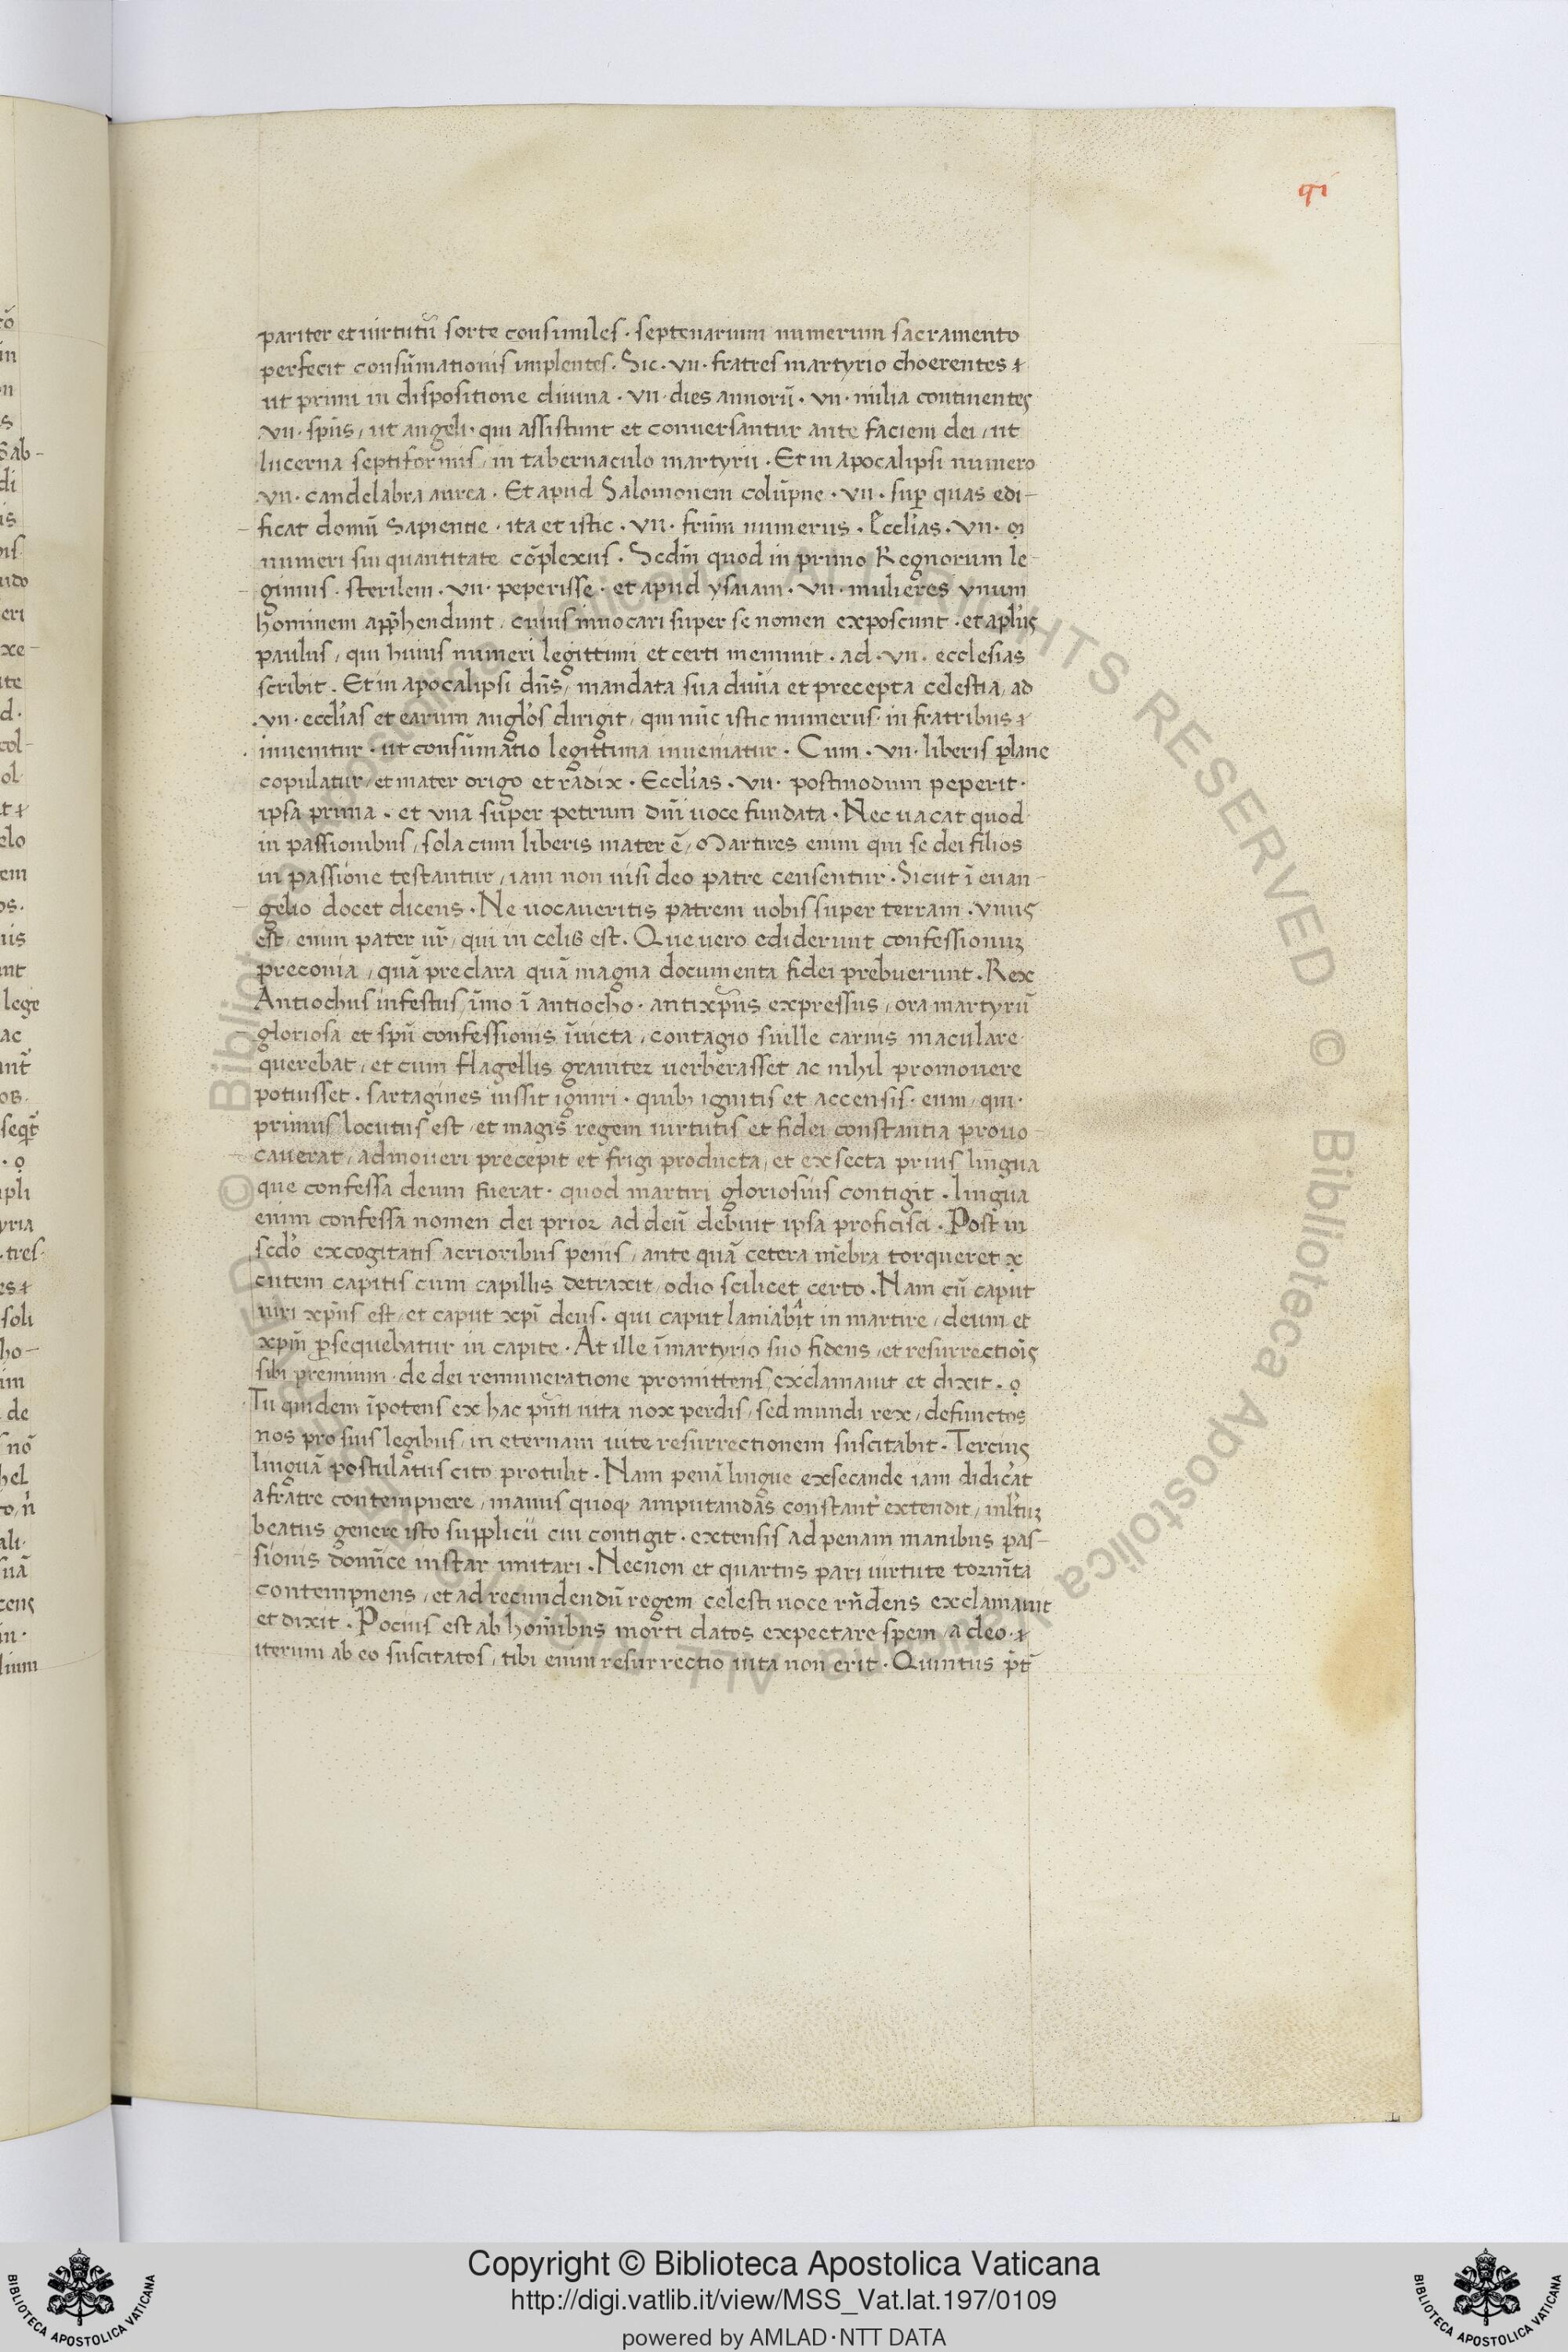 qi
pariter et uirtutū sorte consimiles · septenarium numerum sacramento
perfecit consūmationis implentes · Sic · vii · fratres martyrio choerentes
ut primi in dispositione diuina · vii · dies annorū · vii · milia continentes
vii · spūs, ut angeli · qui assistunt et conuersantur ante faciem dei, ut
lucerna septiformis, in tabernaculo martyrii · Et in apocalipsi numero
vii · candelabra aurea · Et apud Salomonem colūpne · vii · sup̄ quas edi-
ficat domū Sapientie · ita et istic · vii · frūm numerus · Eccl'ias · vii ·
numeri sui quantitate cōplexus · Sedm̄ quod in primo Regnorum le-
gimus · sterilem · vii · peperisse · et apud ysaiam · vii · mulieres vnum
hominem app̄hendunt, cuius inuocari super se nomen exposcunt · et apl'us
paulus, qui huius numeri legittimi et certi meminit · ad · vii · ecclesias
scribit · Et in apocalipsi dn̄s, mandata sua diuīa et precepta celestia, ad
· vii · eccl'ias et earum angl'os dirigit, qui nūc istic numerus · in fratribus
inuenitur · ut consūmatio legittima inueniatur · Cum · vii · liberis plane
copulatur, et mater origo et radix · Eccl'ias · vii · postmodum peperit ·
ipsa prima · et vna super petrum dn̄i uoce fundata · Nec uacat quod
in passionibus, sola cum liberis mater ē, Martires enim qui se dei filios
in passione testantur, iam non nisi deo patre censentur · Sicut ī euan-
gelio docet dicens · Ne uocaueritis patrem uobis super terram · vnus
est, enim pater ur̄, qui in celis est · Que uero ediderunt confessionuʒ
preconia, quā preclara quā magna documenta fidei prebuerunt · Rex
Antiochus infestus, īmo ī antiocho · antixp̄us expressus, ora martyrū
gloriosa et spū confessionis īuicta, contagio suille carnis maculare
querebat, et cum flagellis grauiter uerberasset ac nihil promouere
potuisset · sartagines iussit igniri · quibʒ ignitis et accensis · eum, qui ·
primus locutus est, et magis regem uirtutis et fidei constantia prouo-
cauerat, admoueri precepit et frigi producta, et exsecta prius lingua
que confessa deum fuerat · quod martiri gloriosius contigit · lingua
enim confessa nomen dei prior ad deū debuit ipsa proficisci · Post in
sc̄do excogitatis acrioribus penis, ante quā cetera mēbra torqueret
cutem capitis cum capillis detraxit, odio scilicet certo · Nam cū caput
uiri xp̄us est, et caput xp̄i deus · qui caput laniabat in martire, deum et
xp̄m p̄sequebatur in capite · At ille ī martyrio suo fidens, et resurrectiōis
sibi premium · de dei remuneratione promittens, exclamauit et dixit ·
Tu quidem īpotens ex hac pn̄ti uita nox perdis, sed mundi rex, defunctos
nos pro suis legibus, in eternam uite resurrectionem suscitabit · Tercius
linguā postulatus cito protulit · Nam penā lingue exsecande iam didic'at
a fratre contempnere, manus quoqꝫ amputandas constant' extendit, ml'tuʒ
beatus genere isto supplicii cui contigit · extensis ad penam manibus pas-
sionis domīce instar imitari · Necnon et quartus pari uirtute torm̄ta
contempnens, et ad recundendū regem celesti uoce rn̄dens exclamauit
et dixit · Pocius est ab hom̄ibus morti datos expectare spem, a deo ·
iterum ab eo suscitatos, tibi enim resurrectio uita non erit · Quintus p̄t̄
Copyright © Biblioteca Apostolica Vaticana
http://digi.vatlib.it/view/MSS_Vat.lat.197/0109
powered by AMLAD·NTT DATA